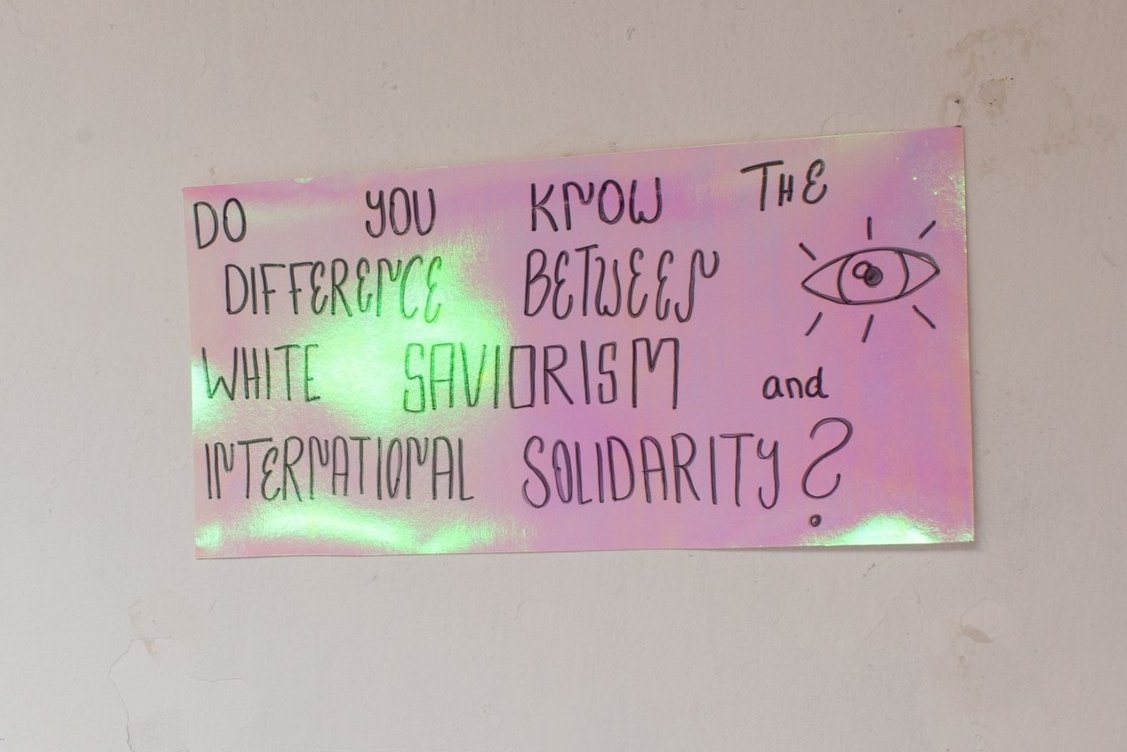 DO YOU KNOW THE
DIFFERENCE BETWEEN
WHITE SAVIORISM and
INTERNATIONAL SOLIDARITY?